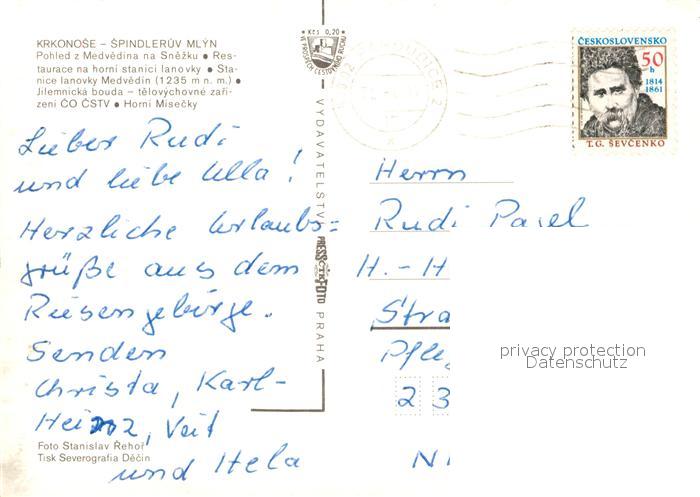 KRKONOŠE – ŠPINDLERŮV MLÝN
Pohled z Medvědína na Sněžku • Res-
taurace na horní stanici lanovky • Sta-
nice lanovky Medvědín (1235 m n. m.) •
Jilemnická bouda – tělovýchovné zaří-
zení ČO ČSTV • Horní Mísečky
Kčs 0,20
VE PROSPĚCH CESTOVNÍHO RUCHU
ČESKOSLOVENSKO
50
h
1814
1861
T. G. ŠEVČENKO
Lieber Rudi
und liebe Ulla!
Herzliche Urlaubs=
grüße aus dem
Riesengebirge.
Senden
Christa, Karl-
Heinz, Veit
und Hela
VYDAVATELSTVÍ
PRESSFOTO
PRAHA
Herrn
Rudi
H.-H
Stra
2 3
privacy protection
Datenschutz
Foto Stanislav Řehoř
Tisk Severografia Děčín